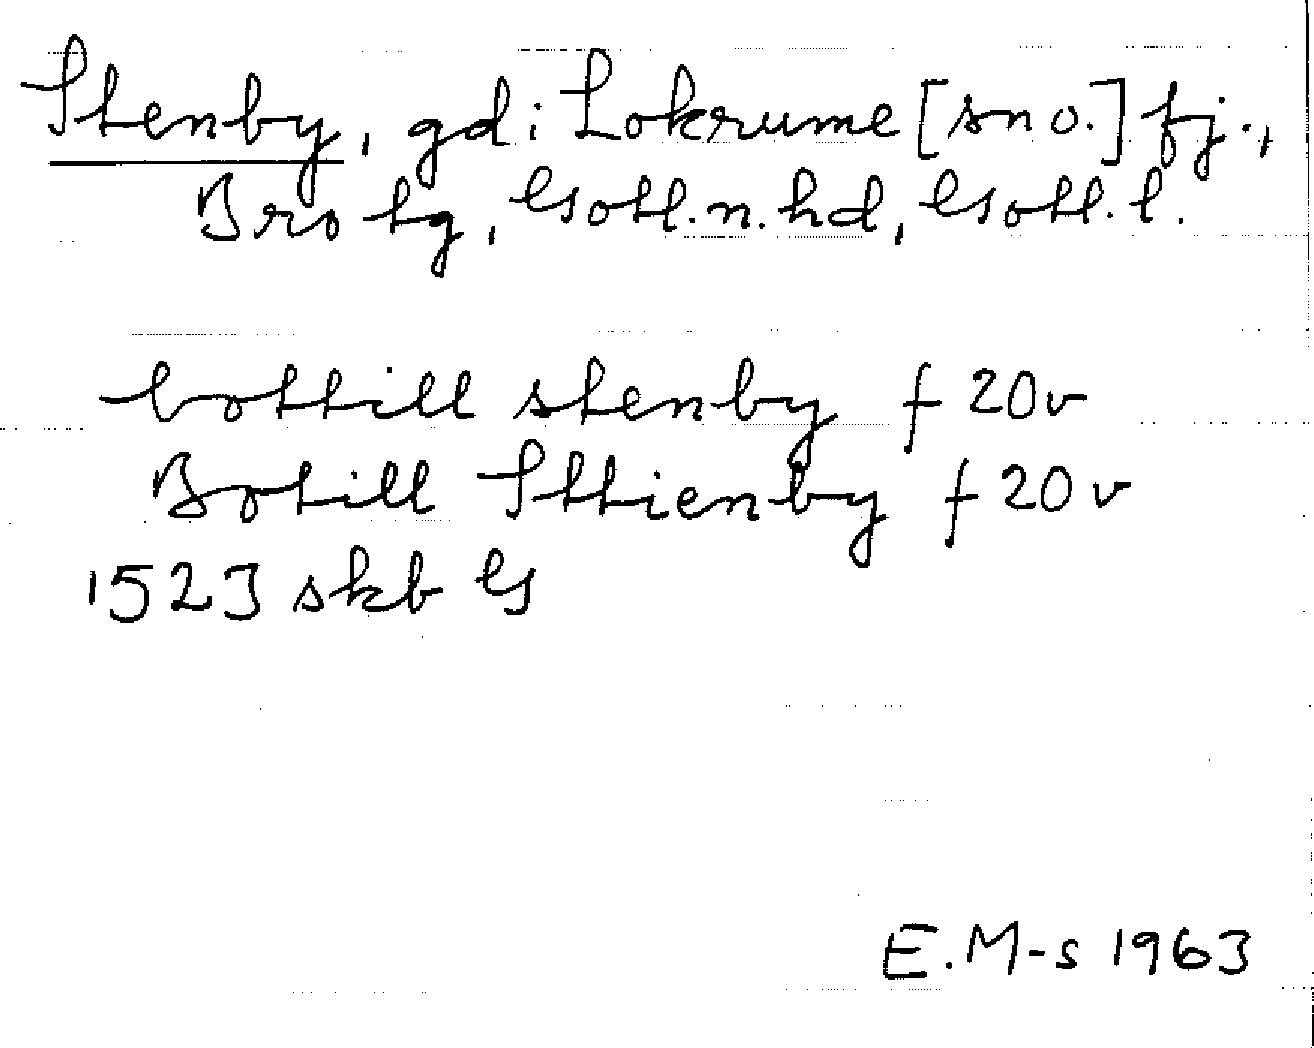 Stenby, gd i Lokrume [sn o.] fj.,
Bro tg, Gotl.n.hd, Gotl.l.
bottill stenby f 20v
Botill Sttienby f 20v
1523 skb G
E.M-s 1963